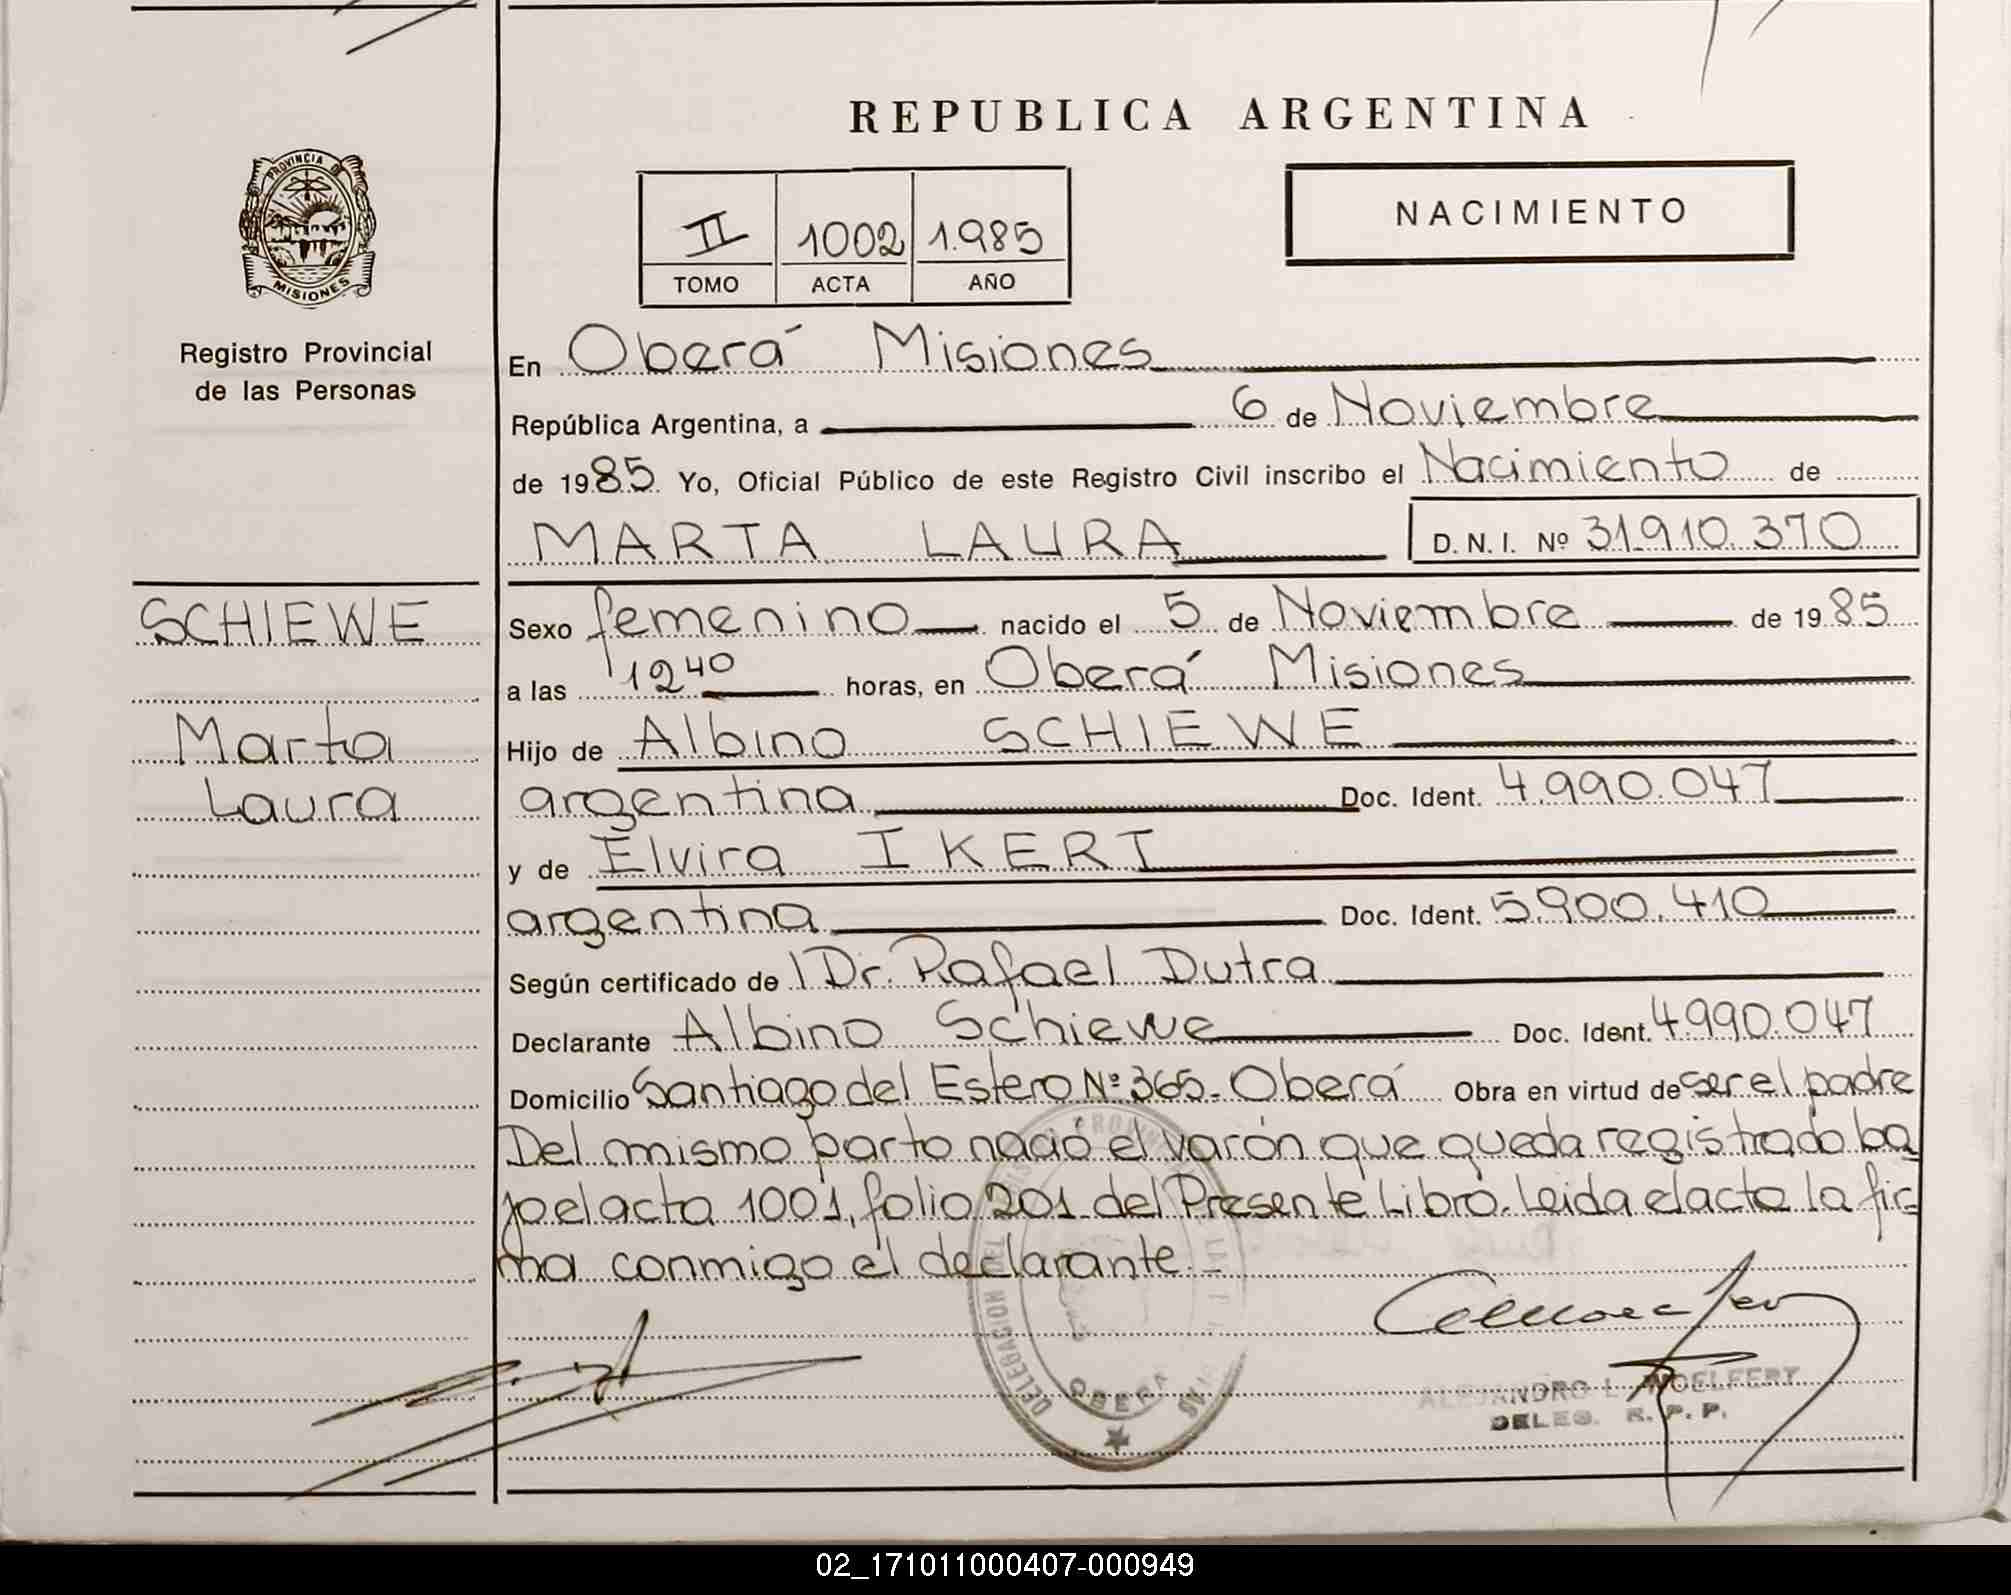 REPUBLICA ARGENTINA
PROVINCIA DE
MISIONES
Registro Provincial
de las Personas
II 1002 1.985
TOMO ACTA AÑO
NACIMIENTO
En Oberá Misiones
República Argentina, a 6 de Noviembre
de 1985 Yo, Oficial Público de este Registro Civil inscribo el Nacimiento de
MARTA LAURA D. N. I. Nº 31.910.370
SCHIEWE
Marta
Laura
Sexo femenino nacido el 5 de Noviembre de 1985
a las 12 40 horas, en Oberá Misiones
Hijo de Albino SCHIEWE
argentina Doc. Ident. 4.990.047
y de Elvira IKERT
argentina Doc. Ident. 5.900.410
Según certificado de Dr. Rafael Dutra
Declarante Albino Schiewe Doc. Ident. 4.990.047
Domicilio Santiago del Estero Nº 365. Oberá Obra en virtud de ser el padre
Del mismo parto nació el varón que queda registrado ba
jo el acta 1001, folio 201 del Presente Libro. Leida el acta la fir=
ma conmigo el declarante.-
DELEGACION DEL
OBERA
ALEJANDRO L. WOELFERT
DELEG. R. P. P.
02_171011000407-000949